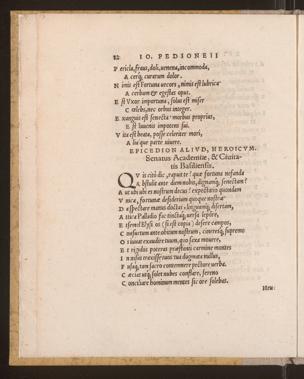 82 IO. PEDIONEII
Pericla, fraus, doli, venena, incommoda,
Acerq́; curarum dolor.
Nimis est Fortuna vecors, nimis est lubrica
Acerbum & egestas opus.
Est Vxor importuna, solus est miser
Cœlebs, nec orbus integer.
Exanguis est senecta morbus proprius,
Est Iuuenis impotens sui.
Vita est breata, posse celeriter mori,
Aliaque parte viuere.
EPICEDION ALIVD, HEROICVM.
Senatus Academiæ, & Ciuita-
tis Basiliensis.
QVis citò dic, rapuit te! quæ fortuna nefanda
Abstulit ante diem nobis, dignamq́; senectam!
At ubi ubi es nostrum decus! expectatio quondam
Vnica, fortunæ desiderium quoque nostræ
Despectare manus doctas, linguamq́; disertam,
Attica Palladio suc tinctaq́; uerba lepôre,
Et semel Elysios (si est copia) desere campos,
Consurtum ante obitum nostrum, cineresq́; supremo
O si uitæ exuuias tuum, quo saxa mouere,
Et rigidas poteras præstanti carmine montes
In nos traxisse tuos tua dogmata nullus,
Fusaq́; tam sacro contemnere pectore uerba.
Ac ueluti solet nubes constare, sereno
Conciliare hominum mentes sic ore solebas.
Heu: